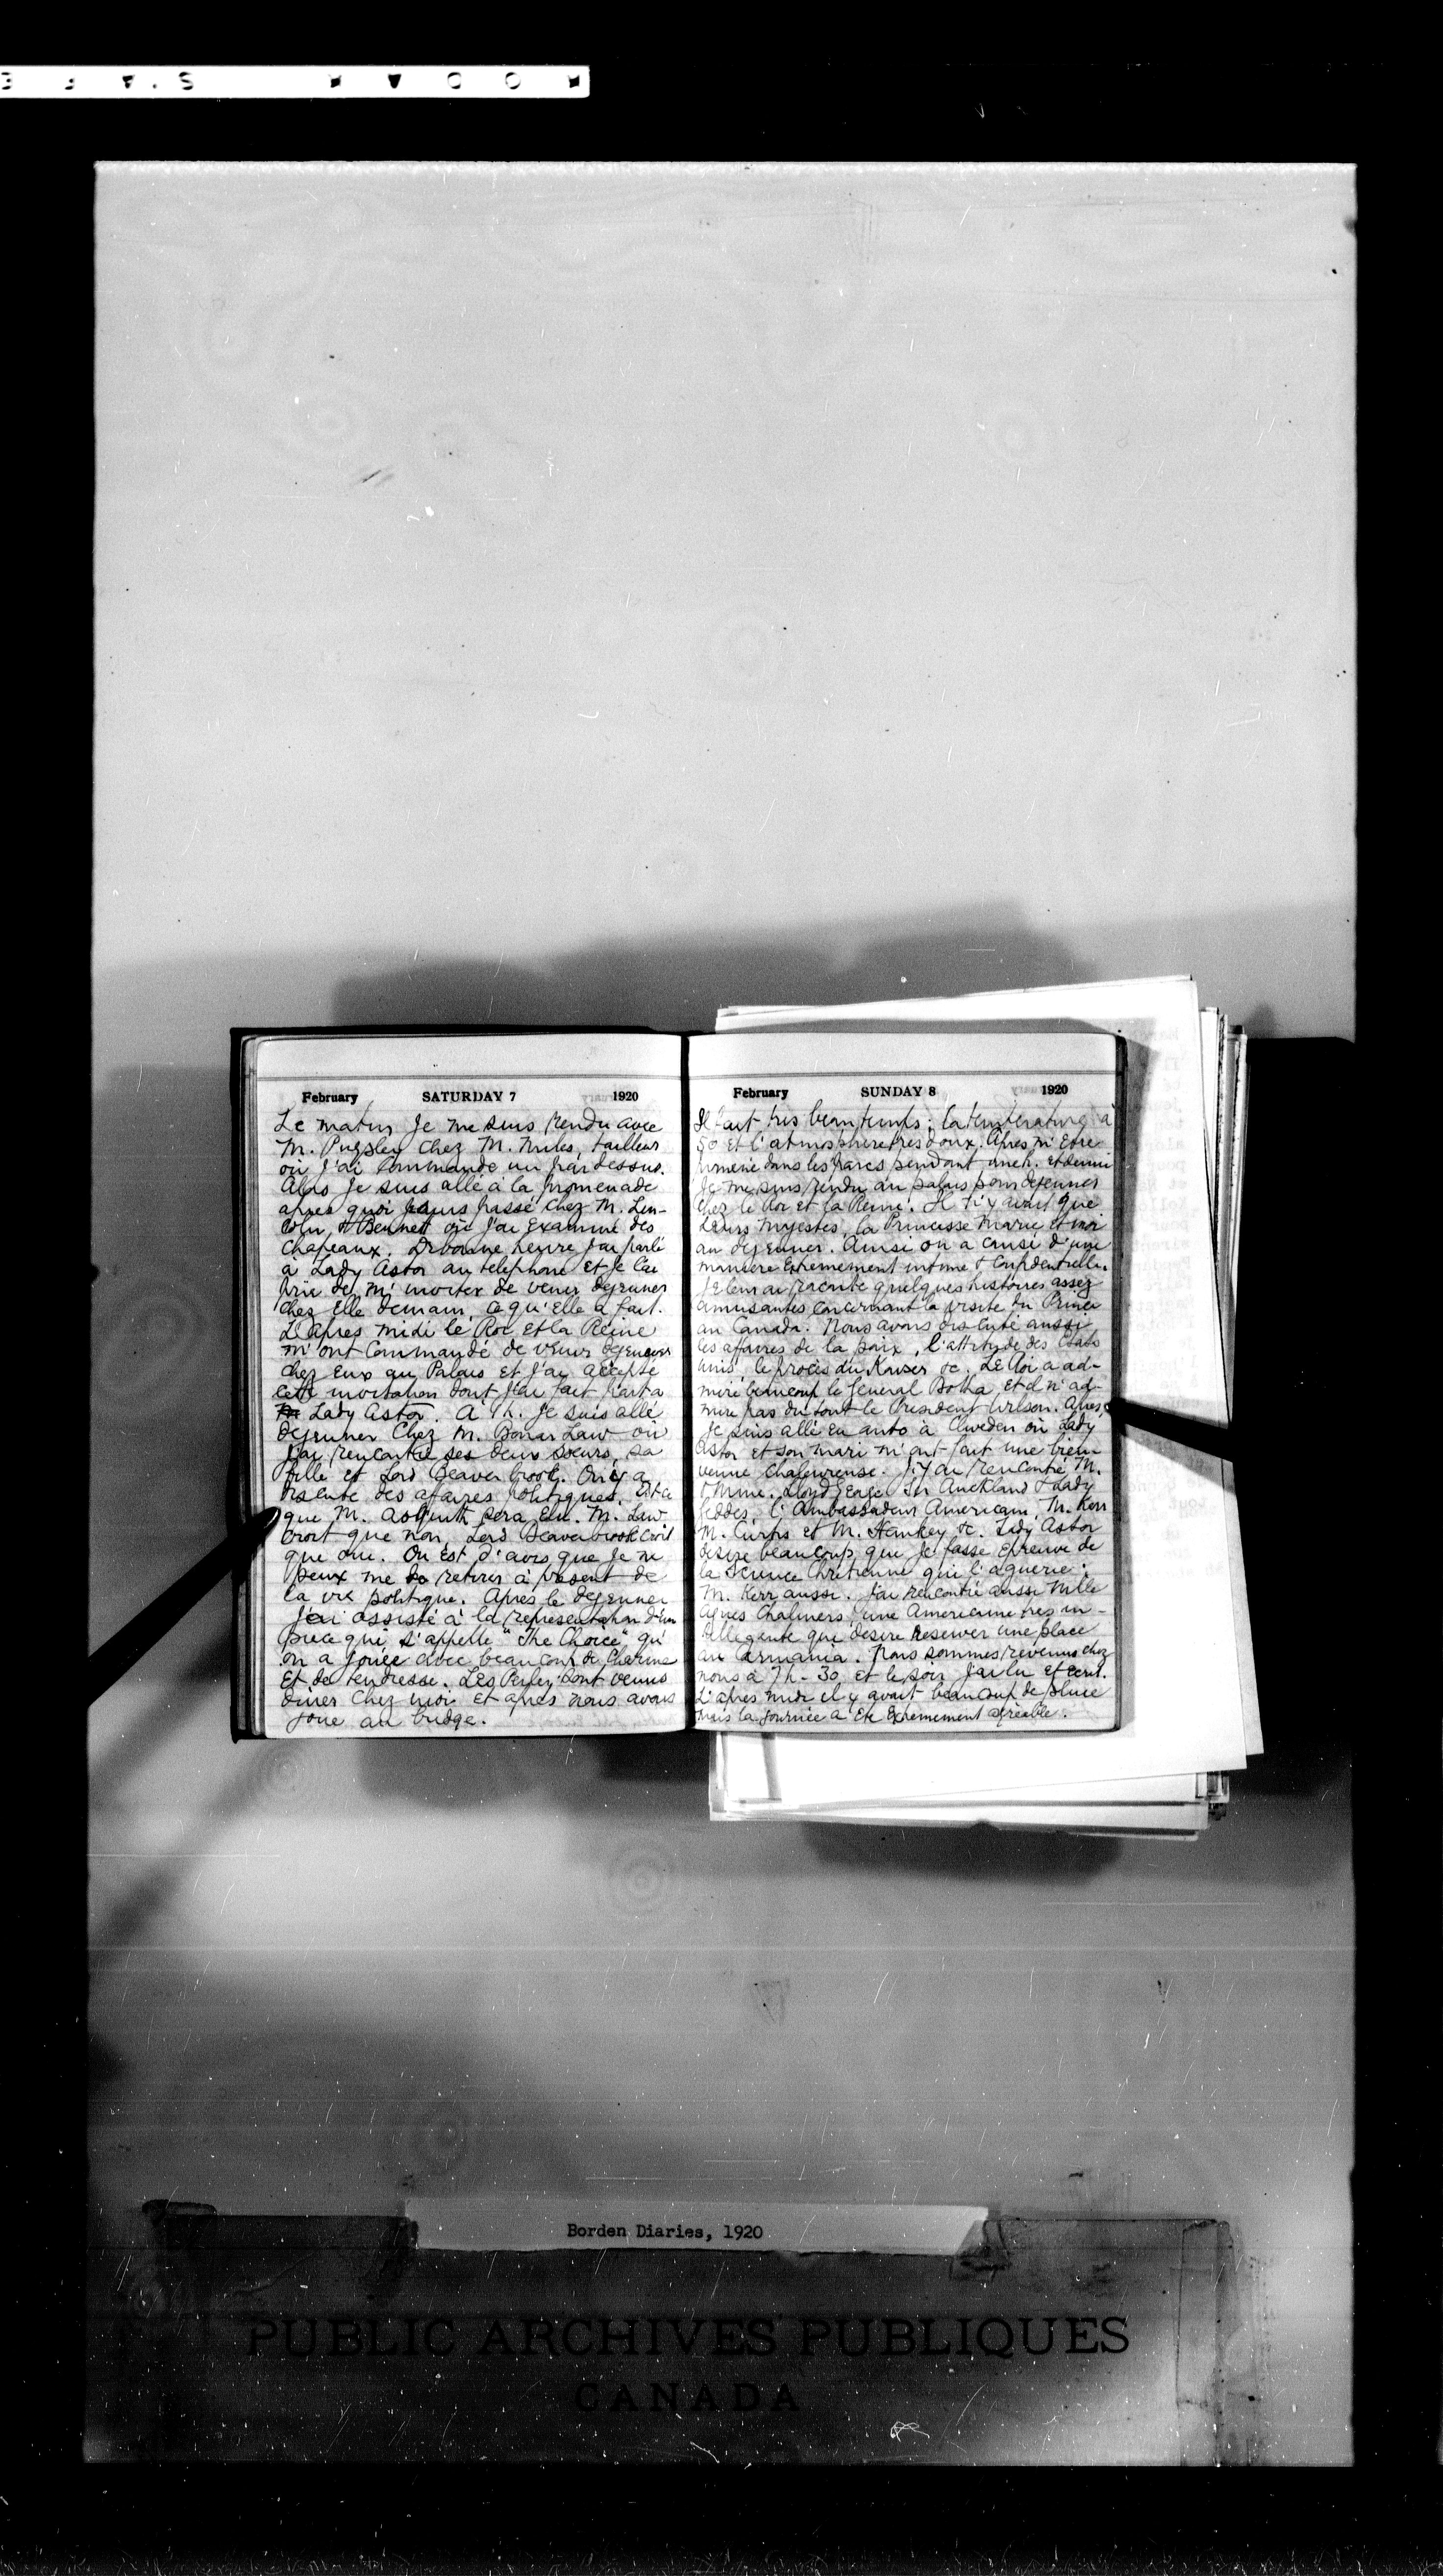 February SATURDAY 7 1920
Le matin je me suis rendu avec
M. Pugsley chez M. Miles, tailleur
où j'ai commandé un pardessus.
Alors je suis allé à la promenade
après quoi je suis passé chez M. Lin-
coln & Bennett où j'ai examiné des
chapeaux. De bonne heure j'ai parlé
à Lady Astor au telephone et je l'ai
prié de m'inviter de venir dejeuner
chez elle demain, ce qu'elle a fait.
L'après midi le Roi et la Reine
m'ont commandé de venir dejeuner
chez eux au Palais et j'ai accepté
cette invitation dont j'ai fait part a
Lady Astor. A 1h. je suis allé
dejeuner chez M. Bonar Law où
j'ai rencontré ses deux soeurs, sa
fille et Lord Beaverbrook. On y a
discuté des affaires politiques. Est ce
que M. Asquith sera élu. M. Law
croit que non, Lord Beaverbrook croit
que oui. On est d'avis que je ne
peux me retirer à présent de
la vie politique. Après le dejeuner
j'ai assisté à la representation d'une
piece qui s'appelle "The Choice" qu'
on a jouée avec beaucoup de charme
et de tendresse. Les Perley sont venus
diner chez moi et après nous avons
joué au bridge.
February SUNDAY 8 1920
Il fait très beau temps; la temperature à
50 et l'atmosphere très doux. Après m'être
promené dans les parcs pendant une h. et demi
je me suis rendu au palais pour dejeuner
chez le Roi et la Reine. Il n'y avait que
Leurs Majestés, la Princesse Marie et moi
au dejeuner. Ainsi on a causé d'une
manière extremement intime & confidentielle.
Je leur ai raconté quelques histoires assez
amusantes concernant la visite du Prince
au Canada. Nous avons discuté aussi
les affaires de la paix, l'attitude des Etats
Unis, le procès du Kaiser &c. Le Roi a ad-
miré beaucoup le General Botha et il n'ad-
mire pas du tout le President Wilson. Après,
je suis allé en auto à Cliveden où Lady
Astor et son mari m'ont fait une bien-
venue chaleureuse. J'y ai rencontré M.
& Mme. Lloyd George Sir Auckland & Lady
Geddes, l'Ambassadeur Americain, M. Kerr
M. Curtis et M. Hankey &c. Lady Astor
desire beaucoup que je fasse épreuve de
la Science Chrétienne qui l'a guerie;
M. Kerr aussi. J'ai rencontré aussi Mlle
Agnes Chalmers, une Americaine très in-
telligente que desire reserver une place
au Carmania. Nous sommes revenus chez
nous à 7h-30 et le soir j'ai lu et ecrit.
L'après midi il y avait beaucoup de pluie
mais la journée a été extremement agréable.
Borden Diaries, 1920
PUBLIC ARCHIVES PUBLIQUES
CANADA